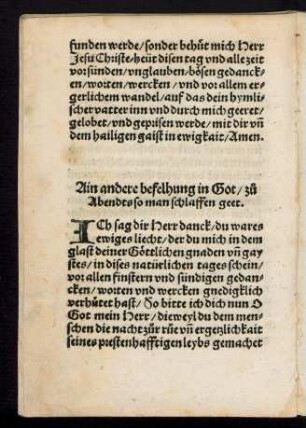 funden werde/sonder behüt mich Herr
Jesu Christe/heüt disen tag vnd alle zeit
vor sünden/vnglauben/bösen gedanck-
en/worten/wercken/vnd vor allem er-
gerlichem wandel/auf das dein hymli-
scher vatter inn vnd durch mich geeret/
gelobet/vnd gepreisen werde/mit dir vñ
dem hailigen gaist in ewigkait/Amen.
Ain andere befelhung in Got/zů
Abendts so man schlaffen geet.
ICh sag dir Herr danck/du wares
ewiges liecht/der du mich in dem
glast deiner Göttlichen gnaden vñ gay
stes/in dises natürlichen tages schein/
vor allen finstern vnd sündigen gedan-
cken/worten vnd wercken gnedigklich
verhütet hast/So bitte ich dich nun O
Got mein Herr/dieweyl du dem men-
schen die nacht zůr růe vñ ergetzlichkait
seines prestenhafftigen leybs gemachet